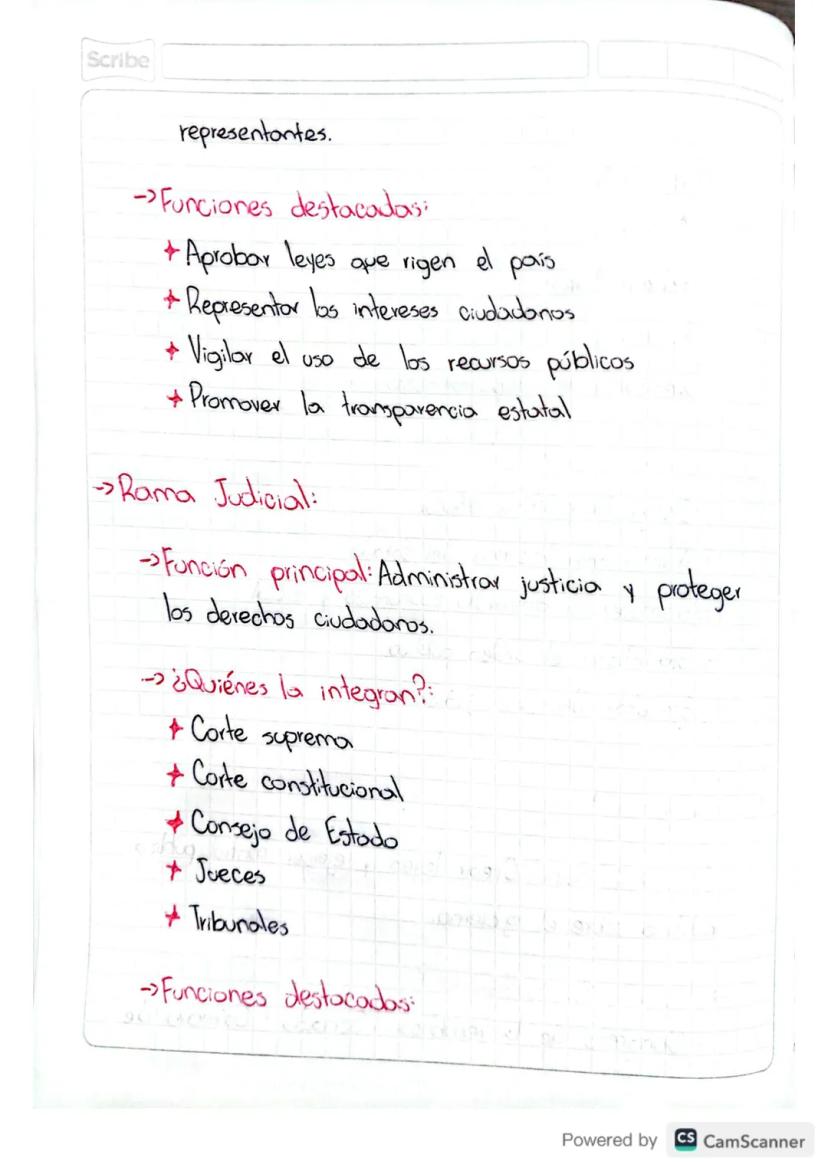 Scribe
representantes.
→Funciones destacadas:
+ Aprobar leyes que rigen el país
+ Representar los intereses ciudadanos
+ Vigilar el uso de los recursos públicos
+ Promover la transparencia estatal
→Rama Judicial:
→Función principal: Administrar justicia y proteger
los derechos ciudadanos.
→¿Quiénes la integran?:
+ Corte suprema
+ Corte constitucional
+ Consejo de Estado
+ Jueces
+ Tribunales
→Funciones destacadas:
Powered by CS CamScanner